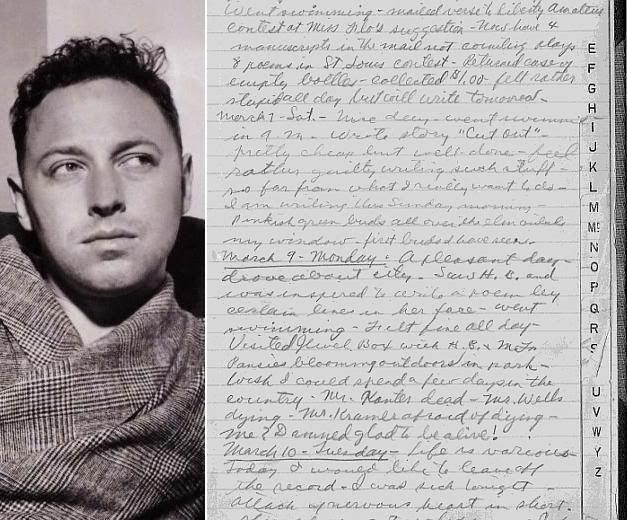 Went swimming - mailed verse to Liberty Amateur
contest at Miss Flo's suggestion - Now have 4
manuscripts in the mail not counting plays
& poems in St. Louis contest - Returned case of
empty bottles - collected $1.00 - felt rather
stupid all day but will write tomorrow -
March 7 - Sat. - Nice day - went swimming
in P.M. - Wrote story "Cut out" -
pretty cheap but well done - feel
rather guilty writing such stuff -
so far from what I really want to do -
I am writing this Sunday morning -
Pinkish green buds all over the elm outside
my window - first buds I have seen.
March 9 - Monday: A pleasant day -
drove about city - Saw H. B. and
was inspired to write a poem by
certain lines in her face - went
swimming - Felt fine all day -
Visited Jewel Box with H.B. &
Pansies blooming outdoors in park -
Wish I could spend a few days in the
country - Mr. Kanter dead - Ms. Wells
dying - Mr. Kramer afraid of dying -
me? Damned glad to be alive!
March 10 - Tuesday - Life is various -
Today I would like to leave off
the record - I was sick tonight -
attack of nervous heart in short.
E
F
G
H
I
J
K
L
M
Mc
N
O
P
Q
R
S
U
V
W
Y
Z